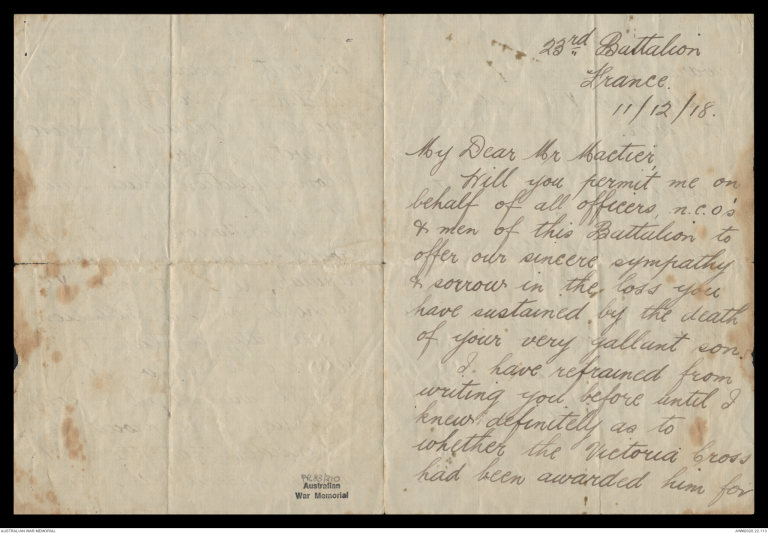 23rd Battalion
France.
11/12/18.
My Dear Mr Mactier,
Will you permit me on
behalf of all officers, n.c.o's
& men of this Battalion to
offer our sincere sympathy
& sorrow in the loss you
have sustained by the death
of your very gallant son.
I have refrained from
writing you before until I
knew definitely as to
whether the Victoria Cross
had been awarded him for
Australian
War Memorial
AUSTRALIAN WAR MEMORIAL